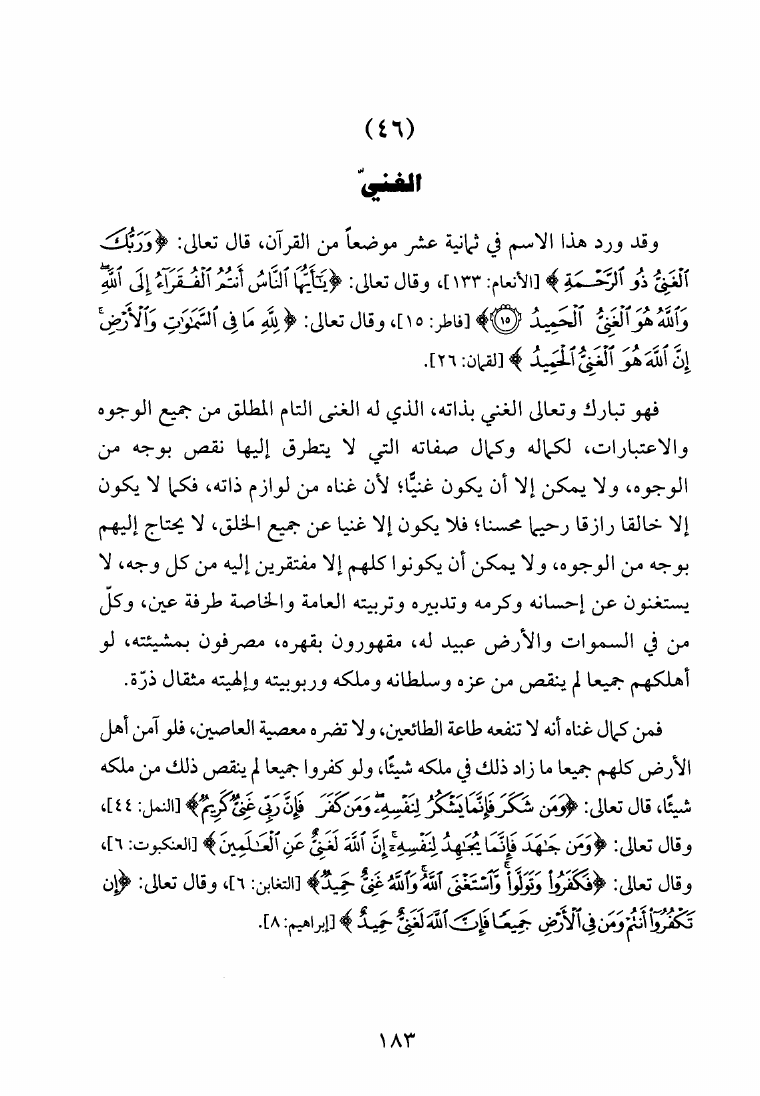 (٤٦)
الغنيّ
وقد ورد هذا الاسم في ثمانية عشر موضعاً من القرآن، قال تعالى: ﴿وَرَبُّكَ
ٱلْغَنِيُّ ذُو ٱلرَّحْمَةِ﴾ [الأنعام: ١٣٣]، وقال تعالى: ﴿يَٰٓأَيُّهَا ٱلنَّاسُ أَنتُمُ ٱلْفُقَرَآءُ إِلَى ٱللَّهِۖ
وَٱللَّهُ هُوَ ٱلْغَنِيُّ ٱلْحَمِيدُ ١٥﴾ [فاطر: ١٥]، وقال تعالى: ﴿لِلَّهِ مَا فِى ٱلسَّمَٰوَٰتِ وَٱلْأَرْضِۚ
إِنَّ ٱللَّهَ هُوَ ٱلْغَنِيُّ ٱلْحَمِيدُ﴾ [لقمان: ٢٦].
فهو تبارك وتعالى الغني بذاته، الذي له الغنى التام المطلق من جميع الوجوه
والاعتبارات، لكماله وكمال صفاته التي لا يتطرق إليها نقص بوجه من
الوجوه، ولا يمكن إلا أن يكون غنيًّا؛ لأن غناه من لوازم ذاته، فكما لا يكون
إلا خالقا رازقا رحيما محسنا؛ فلا يكون إلا غنيا عن جميع الخلق، لا يحتاج إليهم
بوجه من الوجوه، ولا يمكن أن يكونوا كلهم إلا مفتقرين إليه من كل وجه، لا
يستغنون عن إحسانه وكرمه وتدبيره وتربيته العامة والخاصة طرفة عين، وكلّ
من في السموات والأرض عبيد له، مقهورون بقهره، مصرفون بمشيئته، لو
أهلكهم جميعا لم ينقص من عزه وسلطانه وملكه وربوبيته وإلهيته مثقال ذرّة.
فمن كمال غناه أنه لا تنفعه طاعة الطائعين، ولا تضره معصية العاصين، فلو آمن أهل
الأرض كلهم جميعا ما زاد ذلك في ملكه شيئًا، ولو كفروا جميعا لم ينقص ذلك من ملكه
شيئًا، قال تعالى: ﴿وَمَن شَكَرَ فَإِنَّمَا يَشْكُرُ لِنَفْسِهِۦۖ وَمَن كَفَرَ فَإِنَّ رَبِّى غَنِىٌّ كَرِيمٌ﴾ [النمل: ٤٤]،
وقال تعالى: ﴿وَمَن جَٰهَدَ فَإِنَّمَا يُجَٰهِدُ لِنَفْسِهِۦٓۚ إِنَّ ٱللَّهَ لَغَنِىٌّ عَنِ ٱلْعَٰلَمِينَ﴾ [العنكبوت: ٦]،
وقال تعالى: ﴿فَكَفَرُوا۟ وَتَوَلَّوا۟ۚ وَّٱسْتَغْنَى ٱللَّهُۚ وَٱللَّهُ غَنِىٌّ حَمِيدٌ﴾ [التغابن: ٦]، وقال تعالى: ﴿إِن
تَكْفُرُوٓا۟ أَنتُمْ وَمَن فِى ٱلْأَرْضِ جَمِيعًا فَإِنَّ ٱللَّهَ لَغَنِىٌّ حَمِيدٌ﴾ [إبراهيم: ٨].
١٨٣